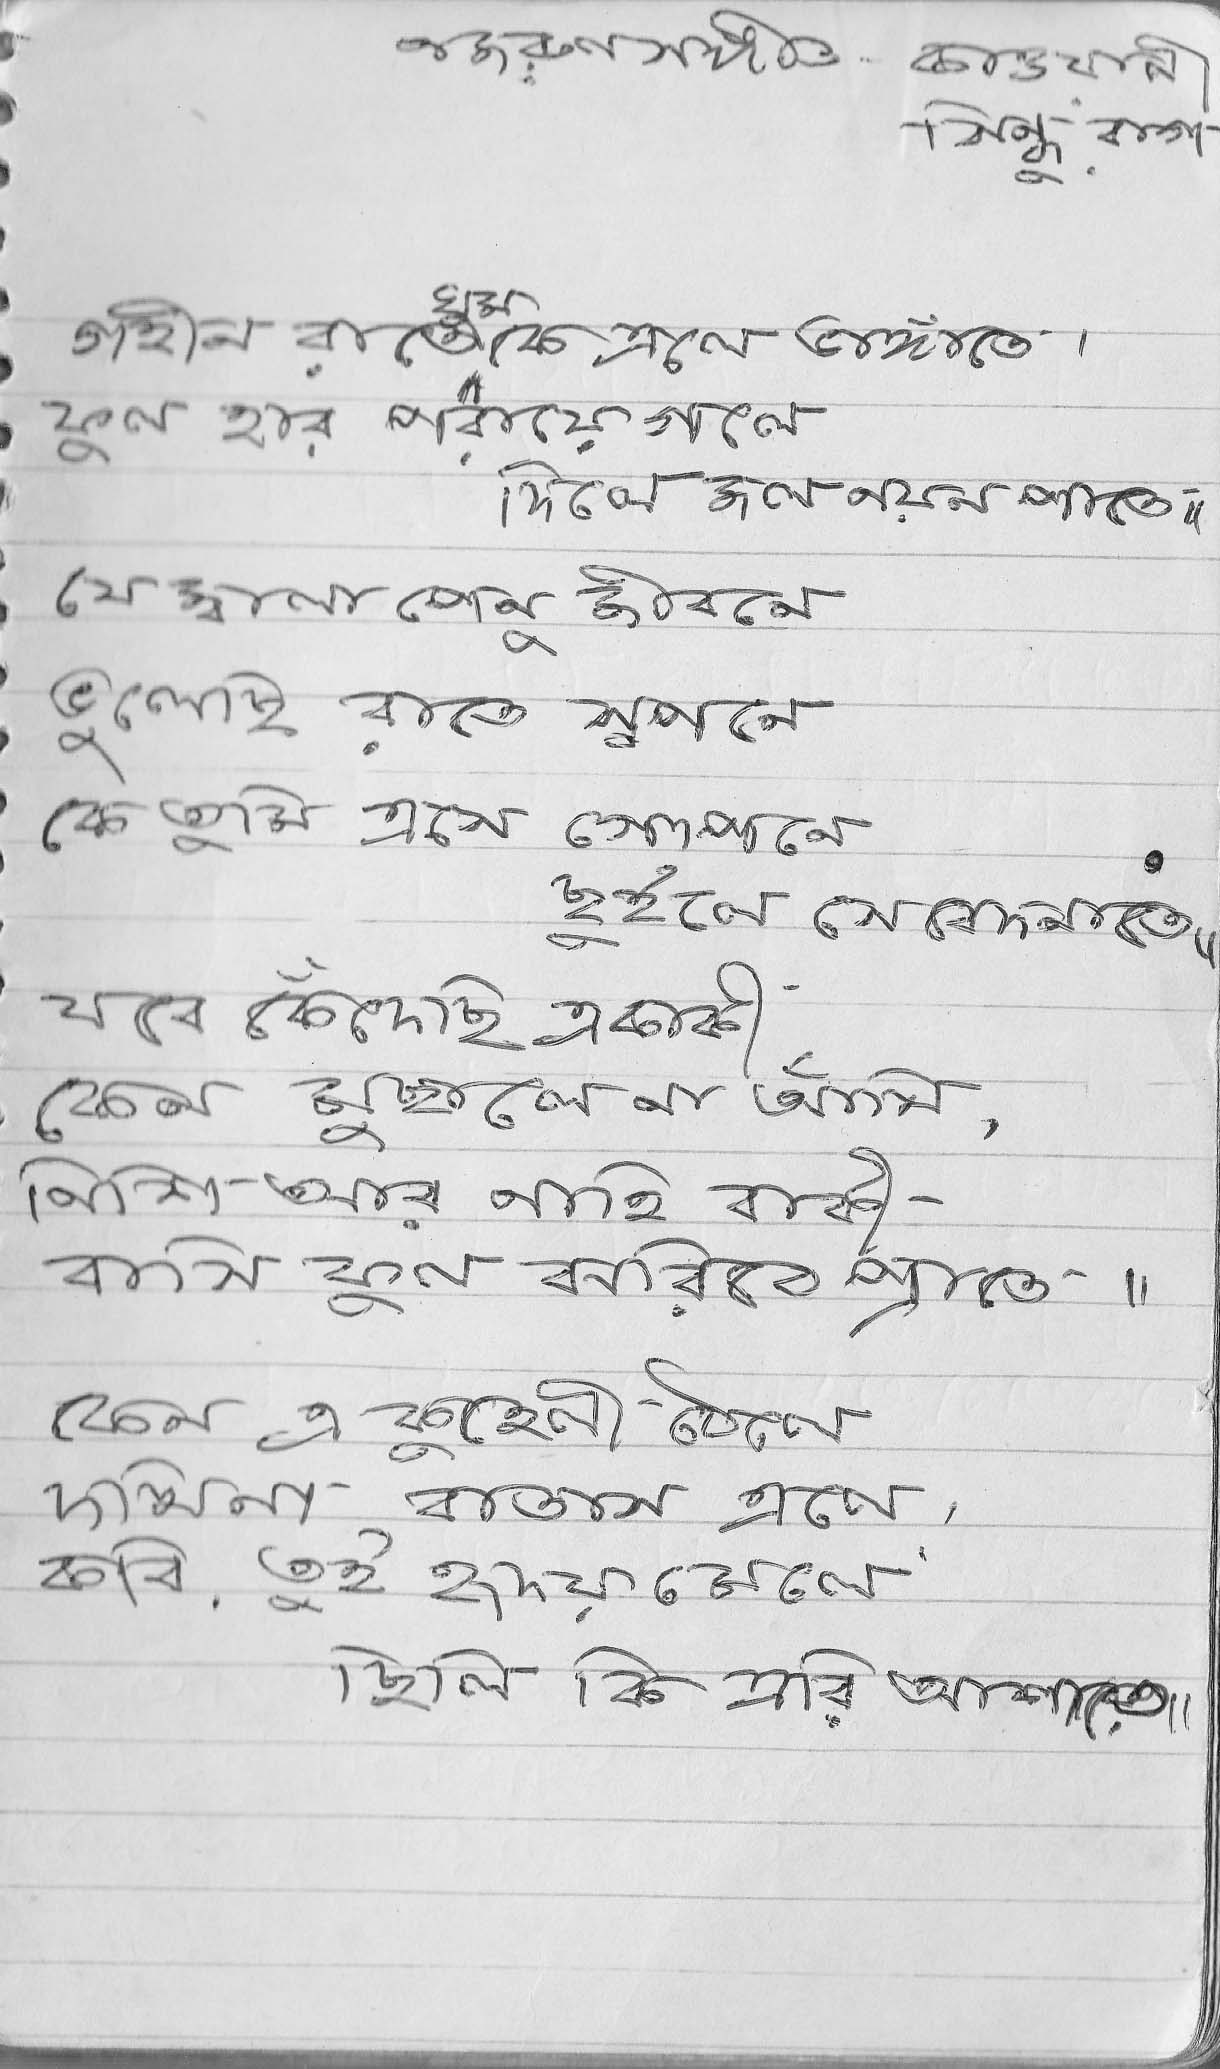 নজরুলসঙ্গীত - কাওয়ালী
সিন্ধু রাগ
গহীন রাতে ঘুম কে এলে ভাঙ্গাতে ।
ফুল হার পরায়ে গলে
দিলে জল নয়ন পাতে ॥
যে জ্বালা পেনু জীবনে
ভুলেছি রাতে স্বপনে
কে তুমি এসে গোপনে
ছুইলে সে বেদনাতে ॥
যবে কেঁদেছি একাকী
কেন মুছালে না আঁখি,
নিশি আর নাহি বাকী
বাসি ফুল ঝরিবে প্রাতে ॥
কেন এ কুহেলী ঠেলে
দখিনা বাতাস এলে,
কবি. তুই হৃদয় মেলে
ছিলি কি এরি আশাতে ॥